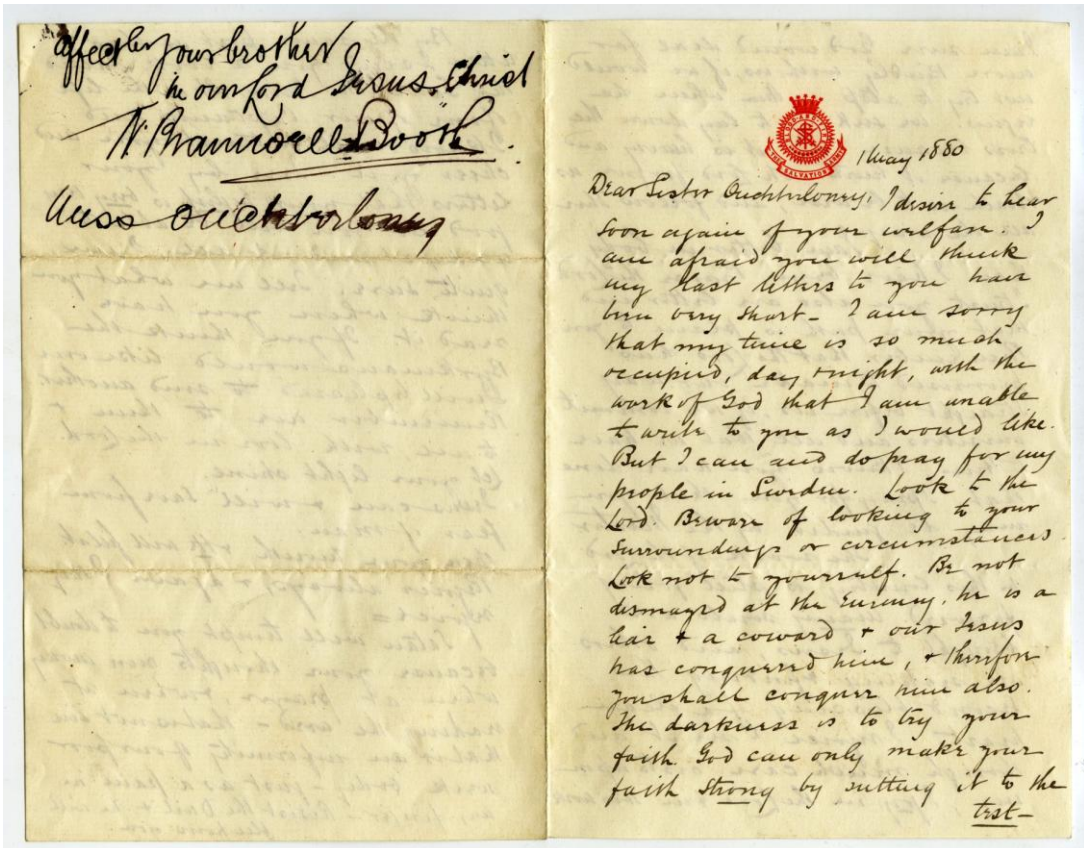 affectly your brother
in our Lord Jesus Christ
W Bramwell Booth.
Miss Ouchterloney
BLOOD AND FIRE
THE SALVATION ARMY
1 May 1880
Dear Sister Ouchterloney, I desire to hear
soon again of your welfare. I
am afraid you will think
my last letters to you have
been very short - I am sorry
that my time is so much
occupied, day & night, with the
work of God that I am unable
to write to you as I would like.
But I can and do pray for my
people in Sweden. Look to the
Lord. Beware of looking to your
surroundings or circumstances.
Look not to yourself. Be not
dismayed at the Enemy. he is a
liar & a coward & our Jesus
has conquered him, & therefore
you shall conquer him also.
The darkness is to try your
faith God can only make your
faith strong by putting it to the
test -